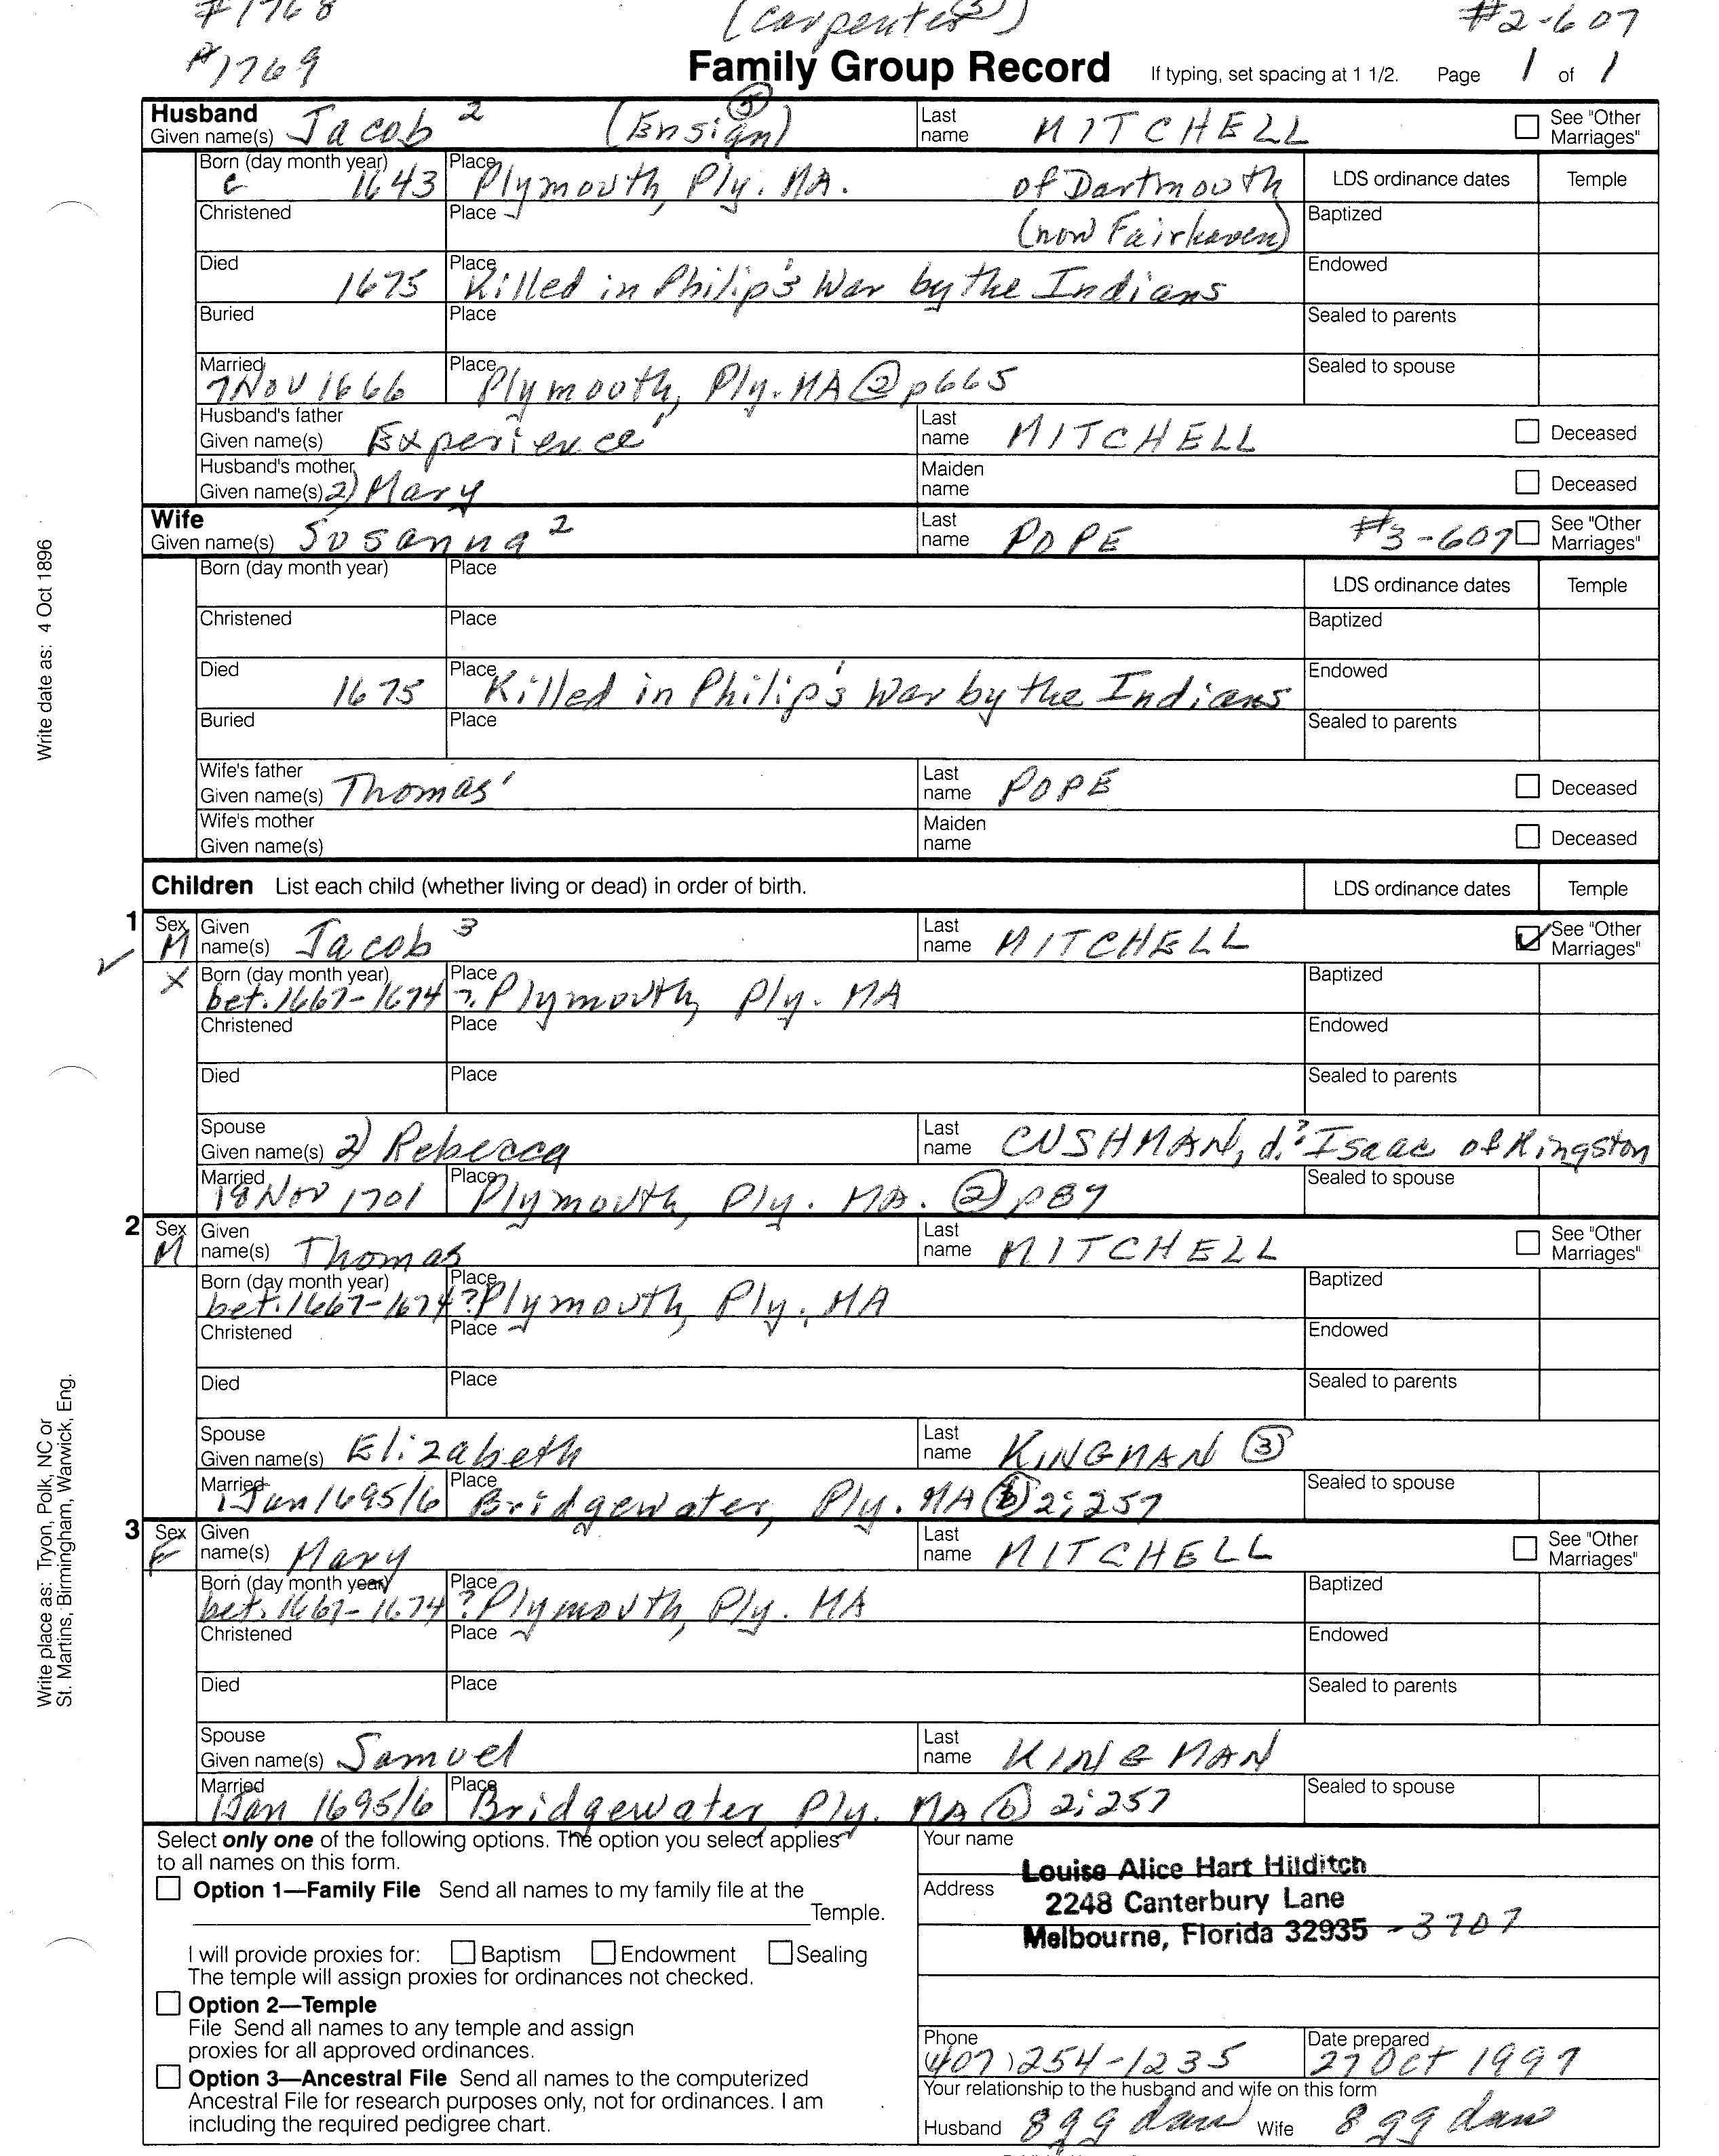 #1768 (Carpenter③) #2-607
#1769
Family Group Record If typing, set spacing at 1 1/2. Page 1 of 1
Husband
Given name(s) Jacob ² (Ensign) ⑤ Last name MITCHELL See "Other Marriages"
Born (day month year) c 1643 Place Plymouth, Ply. MA. of Dartmouth LDS ordinance dates Temple
Christened Place (now Fairhaven) Baptized
Died 1675 Place Killed in Philip's War by the Indians Endowed
Buried Place Sealed to parents
Married 7 Nov 1666 Place Plymouth, Ply. MA ② p665 Sealed to spouse
Husband's father
Given name(s) Experience ¹ Last name MITCHELL Deceased
Husband's mother
Given name(s) 2) Mary Maiden name Deceased
Wife
Given name(s) Susanna ² Last name POPE #3-607 See "Other Marriages"
Born (day month year) Place LDS ordinance dates Temple
Christened Place Baptized
Died 1675 Place Killed in Philip's War by the Indians Endowed
Buried Place Sealed to parents
Wife's father
Given name(s) Thomas ¹ Last name POPE Deceased
Wife's mother
Given name(s) Maiden name Deceased
Children List each child (whether living or dead) in order of birth. LDS ordinance dates Temple
1 Sex M Given name(s) Jacob ³ Last name MITCHELL ✓ See "Other Marriages"
✓ X Born (day month year) bet. 1667-1674 Place ?. Plymouth, Ply. MA Baptized
Christened Place Endowed
Died Place Sealed to parents
Spouse
Given name(s) 2) Rebecca Last name CUSHMAN, d.? Isaac of Kingston
Married 18 Nov 1701 Place Plymouth, Ply. MA. ② p87 Sealed to spouse
2 Sex M Given name(s) Thomas Last name MITCHELL See "Other Marriages"
Born (day month year) bet. 1667-1674 Place ? Plymouth, Ply. MA Baptized
Christened Place Endowed
Died Place Sealed to parents
Spouse
Given name(s) Elizabeth Last name KINGMAN ③
Married 1 Jan 1695/6 Place Bridgewater, Ply. MA ⑥ 2:257 Sealed to spouse
3 Sex F Given name(s) Mary Last name MITCHELL See "Other Marriages"
Born (day month year) bet. 1667-1674 Place ? Plymouth, Ply. MA Baptized
Christened Place Endowed
Died Place Sealed to parents
Spouse
Given name(s) Samuel Last name KINGMAN
Married 1 Jan 1695/6 Place Bridgewater Ply. MA ⑥ 2:257 Sealed to spouse
Select only one of the following options. The option you select applies
to all names on this form.
Option 1—Family File Send all names to my family file at the
Temple.
I will provide proxies for: Baptism Endowment Sealing
The temple will assign proxies for ordinances not checked.
Option 2—Temple
File Send all names to any temple and assign
proxies for all approved ordinances.
Option 3—Ancestral File Send all names to the computerized
Ancestral File for research purposes only, not for ordinances. I am
including the required pedigree chart.
Your name
Louise Alice Hart Hilditch
Address 2248 Canterbury Lane
Melbourne, Florida 32935 -3707
Phone (407) 254-1235 Date prepared 27 Oct 1997
Your relationship to the husband and wife on this form
Husband 8 gg dau Wife 8 gg dau
Write date as: 4 Oct 1896
Write place as: Tryon, Polk, NC or
St. Martins, Birmingham, Warwick, Eng.